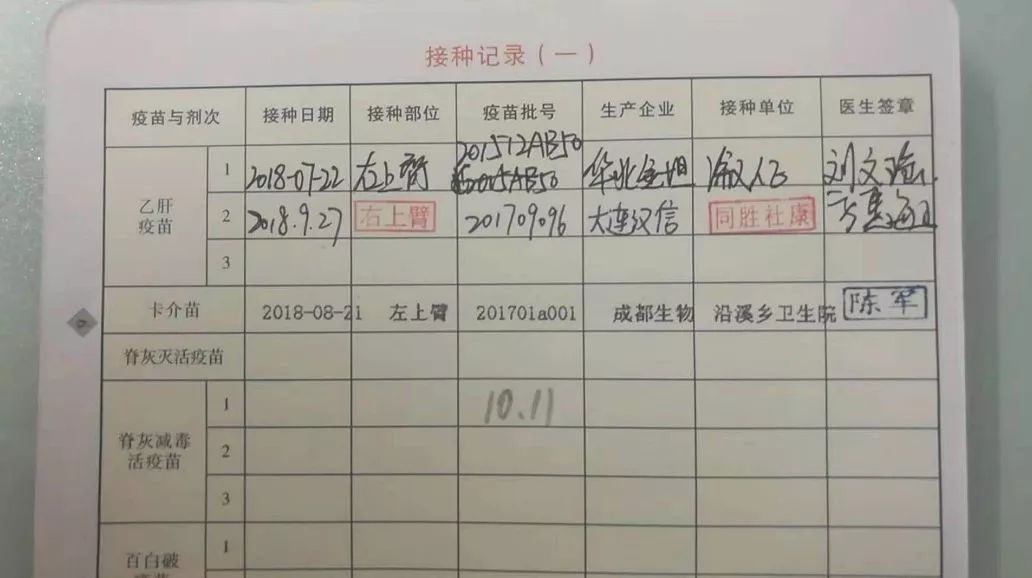 接种记录（一）
疫苗与剂次 接种日期 接种部位 疫苗批号 生产企业 接种单位 医生签章
乙肝疫苗
1 2018-07-22 左上臂 201512AB50 华北金坦 人民
2 2018.9.27 右上臂 201709096 大连汉信 同胜社康
3
卡介苗 2018-08-21 左上臂 201701a001 成都生物 沿溪乡卫生院 陈军
脊灰灭活疫苗
脊灰减毒活疫苗
1 10.11
2
3
百白破
1